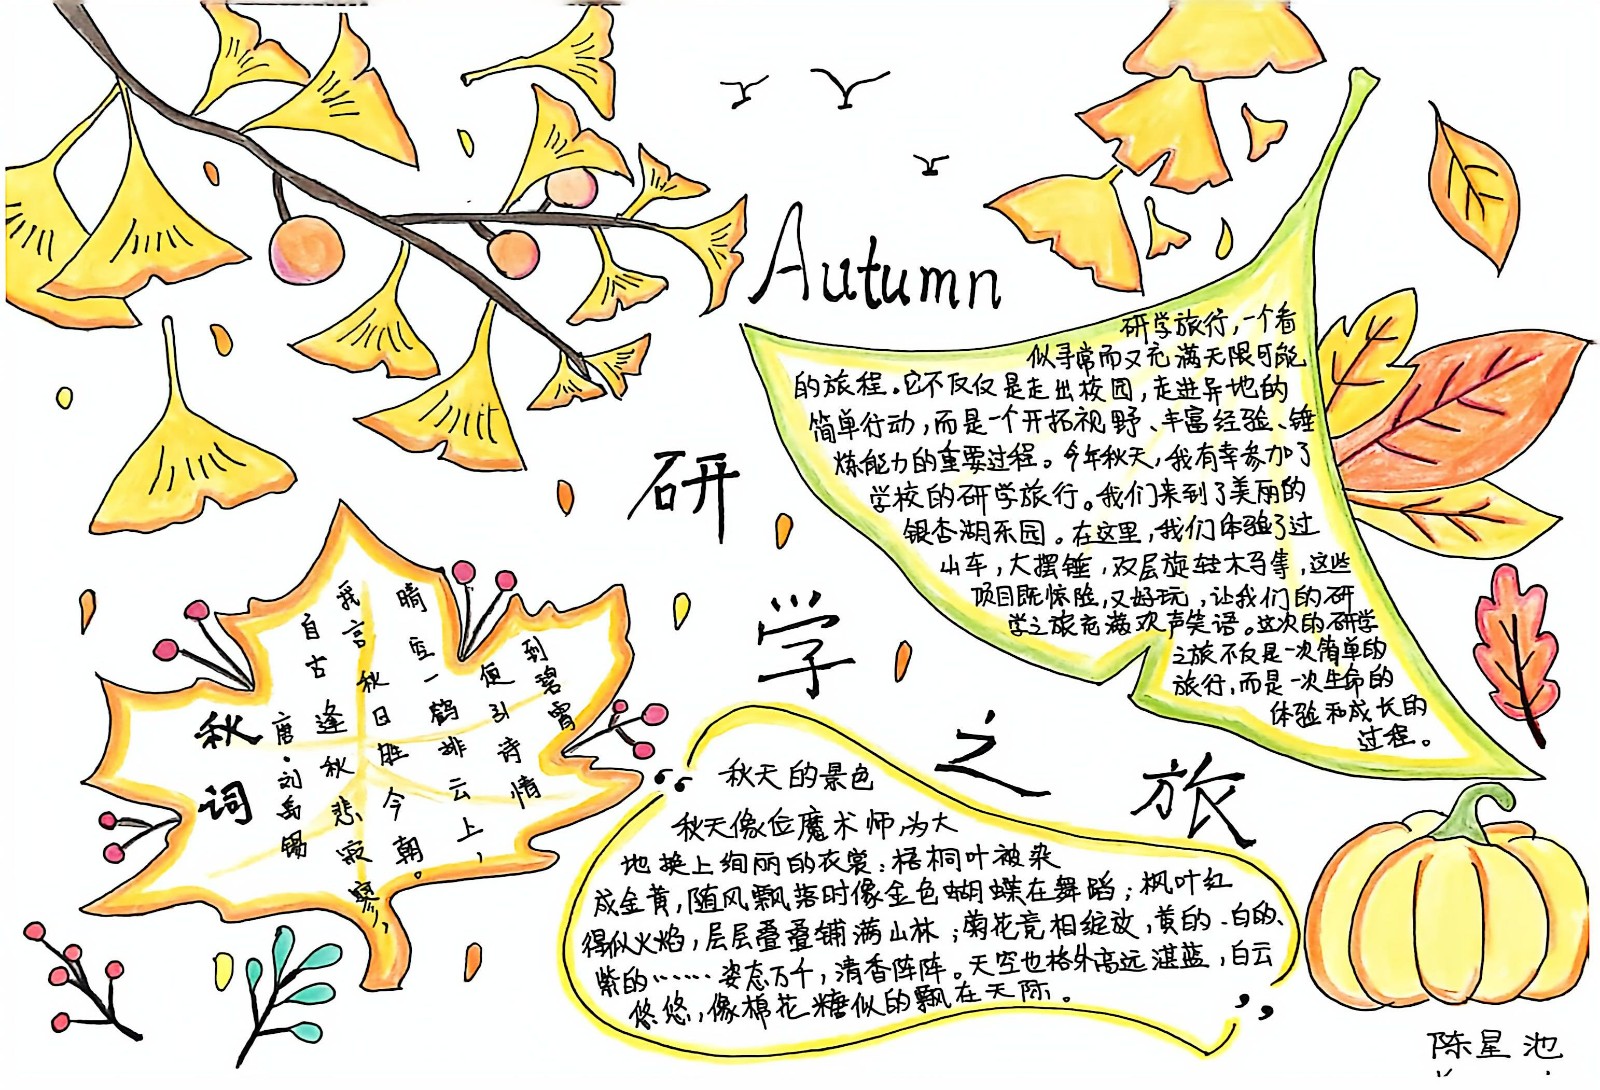 Autumn
研
学
之
旅
研学旅行,一个看
似寻常而又充满无限可能
的旅程。它不仅仅是走出校园,走进异地的
简单行动,而是一个开拓视野、丰富经验、锤
炼能力的重要过程。今年秋天,我有幸参加了
学校的研学旅行。我们来到了美丽的
银杏湖乐园。在这里,我们体验了过
山车,大摆锤,双层旋转木马等,这些
项目既惊险,又好玩,让我们的研
学之旅充满欢声笑语。这次的研学
之旅不仅是一次简单的
旅行,而是一次生命的
体验和成长的
过程。
秋词
唐·刘禹锡
自古逢秋悲寂寥,
我言秋日胜今朝。
晴空一鹤排云上,
便引诗情
到碧霄
“秋天的景色
秋天像位魔术师,为大
地换上绚丽的衣裳:梧桐叶被染
成金黄,随风飘落时像金色蝴蝶在舞蹈;枫叶红
得似火焰,层层叠叠铺满山林;菊花竞相绽放,黄的、白的、
紫的……姿态万千,清香阵阵。天空也格外高远湛蓝,白云
悠悠,像棉花糖似的飘在天际。”
陈星池